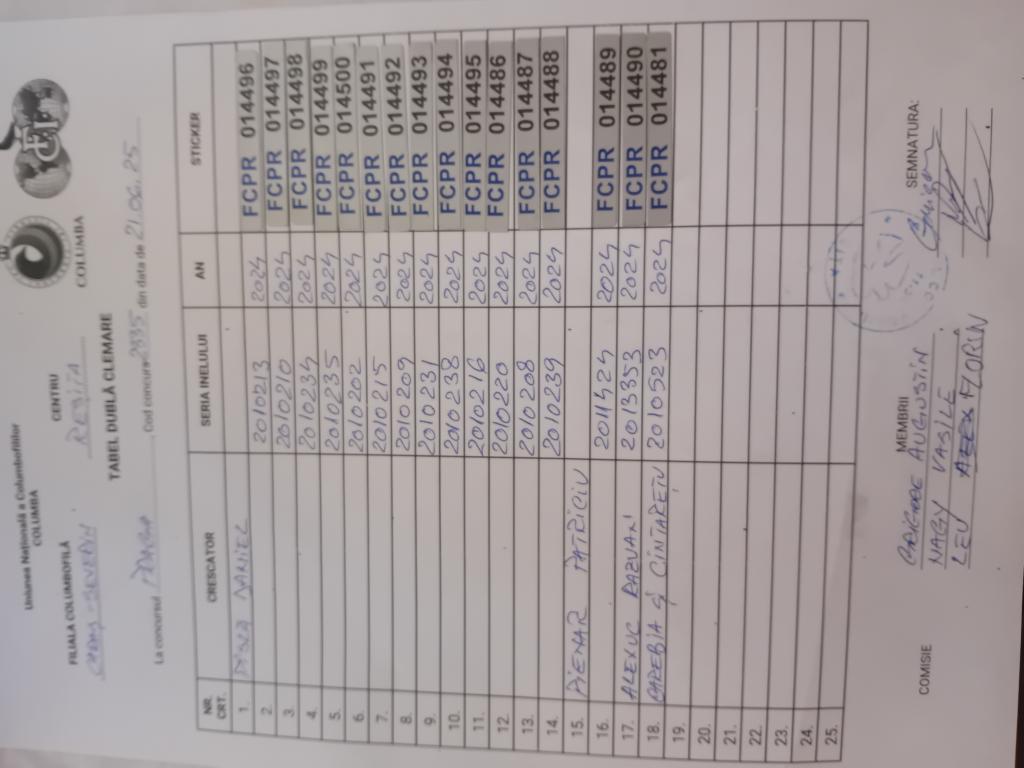 Uniunea Națională a Columbofililor
COLUMBA
COLUMBA
FILIALA COLUMBOFILĂ CENTRU
CARAȘ-SEVERIN REȘIȚA
TABEL DUBLĂ CLEMARE
La concursul PRAGA Cod concurs 2335 din data de 21.06.25
NR. CRT. CRESCĂTOR SERIA INELULUI AN STICKER
1. DANIEL
2. 2010213 2024 FCPR 014496
3. 2010210 2024 FCPR 014497
4. 2010234 2024 FCPR 014498
5. 2010235 2024 FCPR 014499
6. 2010202 2024 FCPR 014500
7. 2010215 2024 FCPR 014491
8. 2010209 2024 FCPR 014492
9. 2010231 2024 FCPR 014493
10. 2010238 2024 FCPR 014494
11. 2010216 2024 FCPR 014495
12. 2010220 2024 FCPR 014486
13. 2010208 2024 FCPR 014487
14. 2010239 2024 FCPR 014488
15. PIENAR PATRICIU
16. 2014424 2024 FCPR 014489
17. ALEXUC RAZVAN 2013353 2024 FCPR 014490
18. CAREBIA ȘI CÎNTAREȚU 2010523 2024 FCPR 014481
19.
20.
21.
22.
23.
24.
25.
COMISIE MEMBRII SEMNATURA:
AUGUSTIN
NAGY VASILE
LEU FLORIN